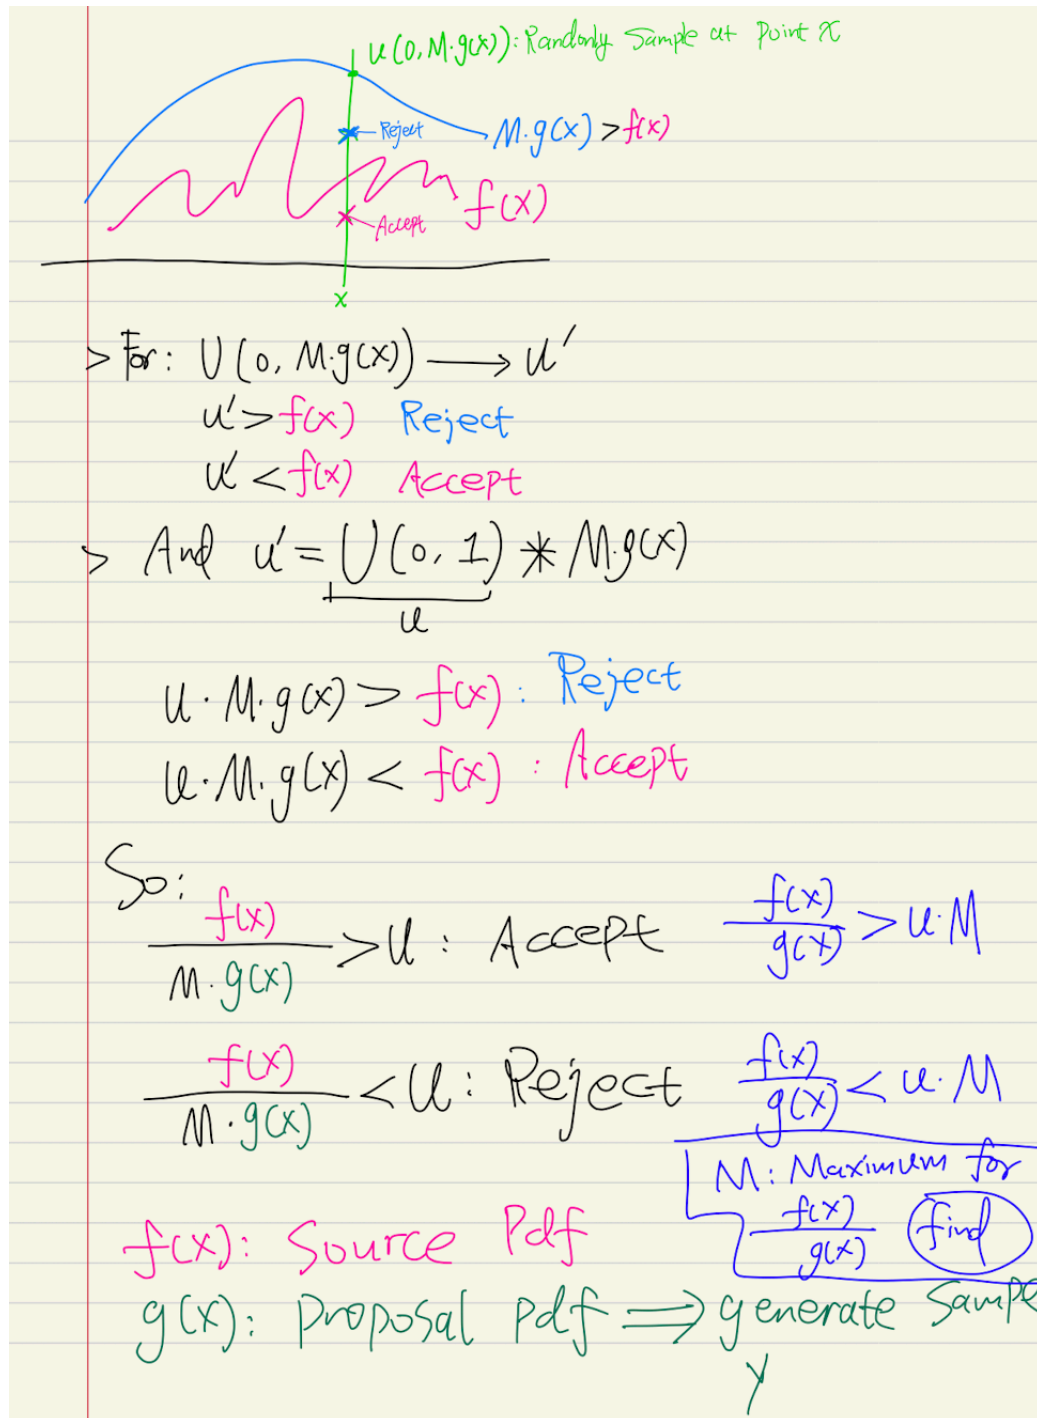 u(0, M·g(x)): Randonly Sample at Point x
Reject
M·g(x) > f(x)
f(x)
Accept
x
> For: U(0, M·g(x)) ⟶ u'
u' > f(x) Reject
u' < f(x) Accept
> And u' = U(0, 1) * M·g(x)
u
u · M · g(x) > f(x) : Reject
u · M · g(x) < f(x) : Accept
So:
f(x) / M · g(x) > u : Accept f(x) / g(x) > u·M
f(x) / M · g(x) < u : Reject f(x) / g(x) < u·M
M: Maximum for
f(x) / g(x) find
f(x): Source Pdf
g(x): Proposal Pdf ⟹ generate Sample
y